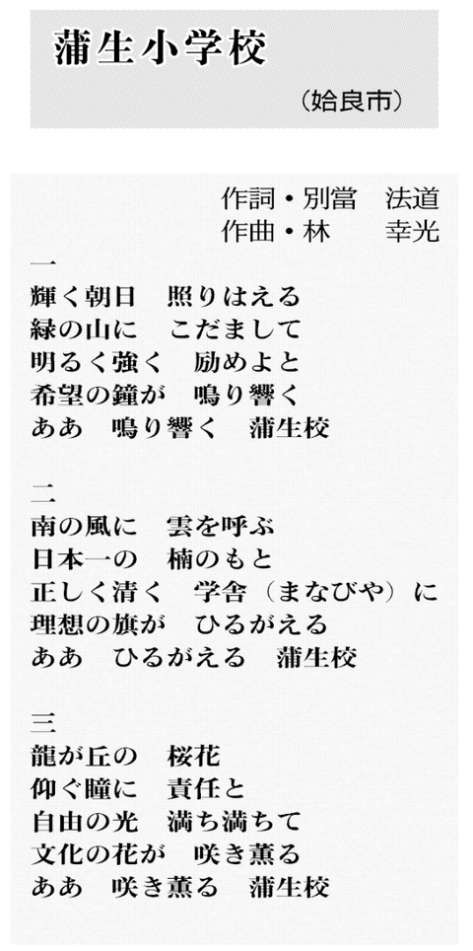 蒲生小学校
（姶良市）
作詞・別當　法道
作曲・林　　幸光
一
輝く朝日　照りはえる
緑の山に　こだまして
明るく強く　励めよと
希望の鐘が　鳴り響く
ああ　鳴り響く　蒲生校
二
南の風に　雲を呼ぶ
日本一の　楠のもと
正しく清く　学舎（まなびや）に
理想の旗が　ひるがえる
ああ　ひるがえる　蒲生校
三
龍が丘の　桜花
仰ぐ瞳に　責任と
自由の光　満ち満ちて
文化の花が　咲き薫る
ああ　咲き薫る　蒲生校